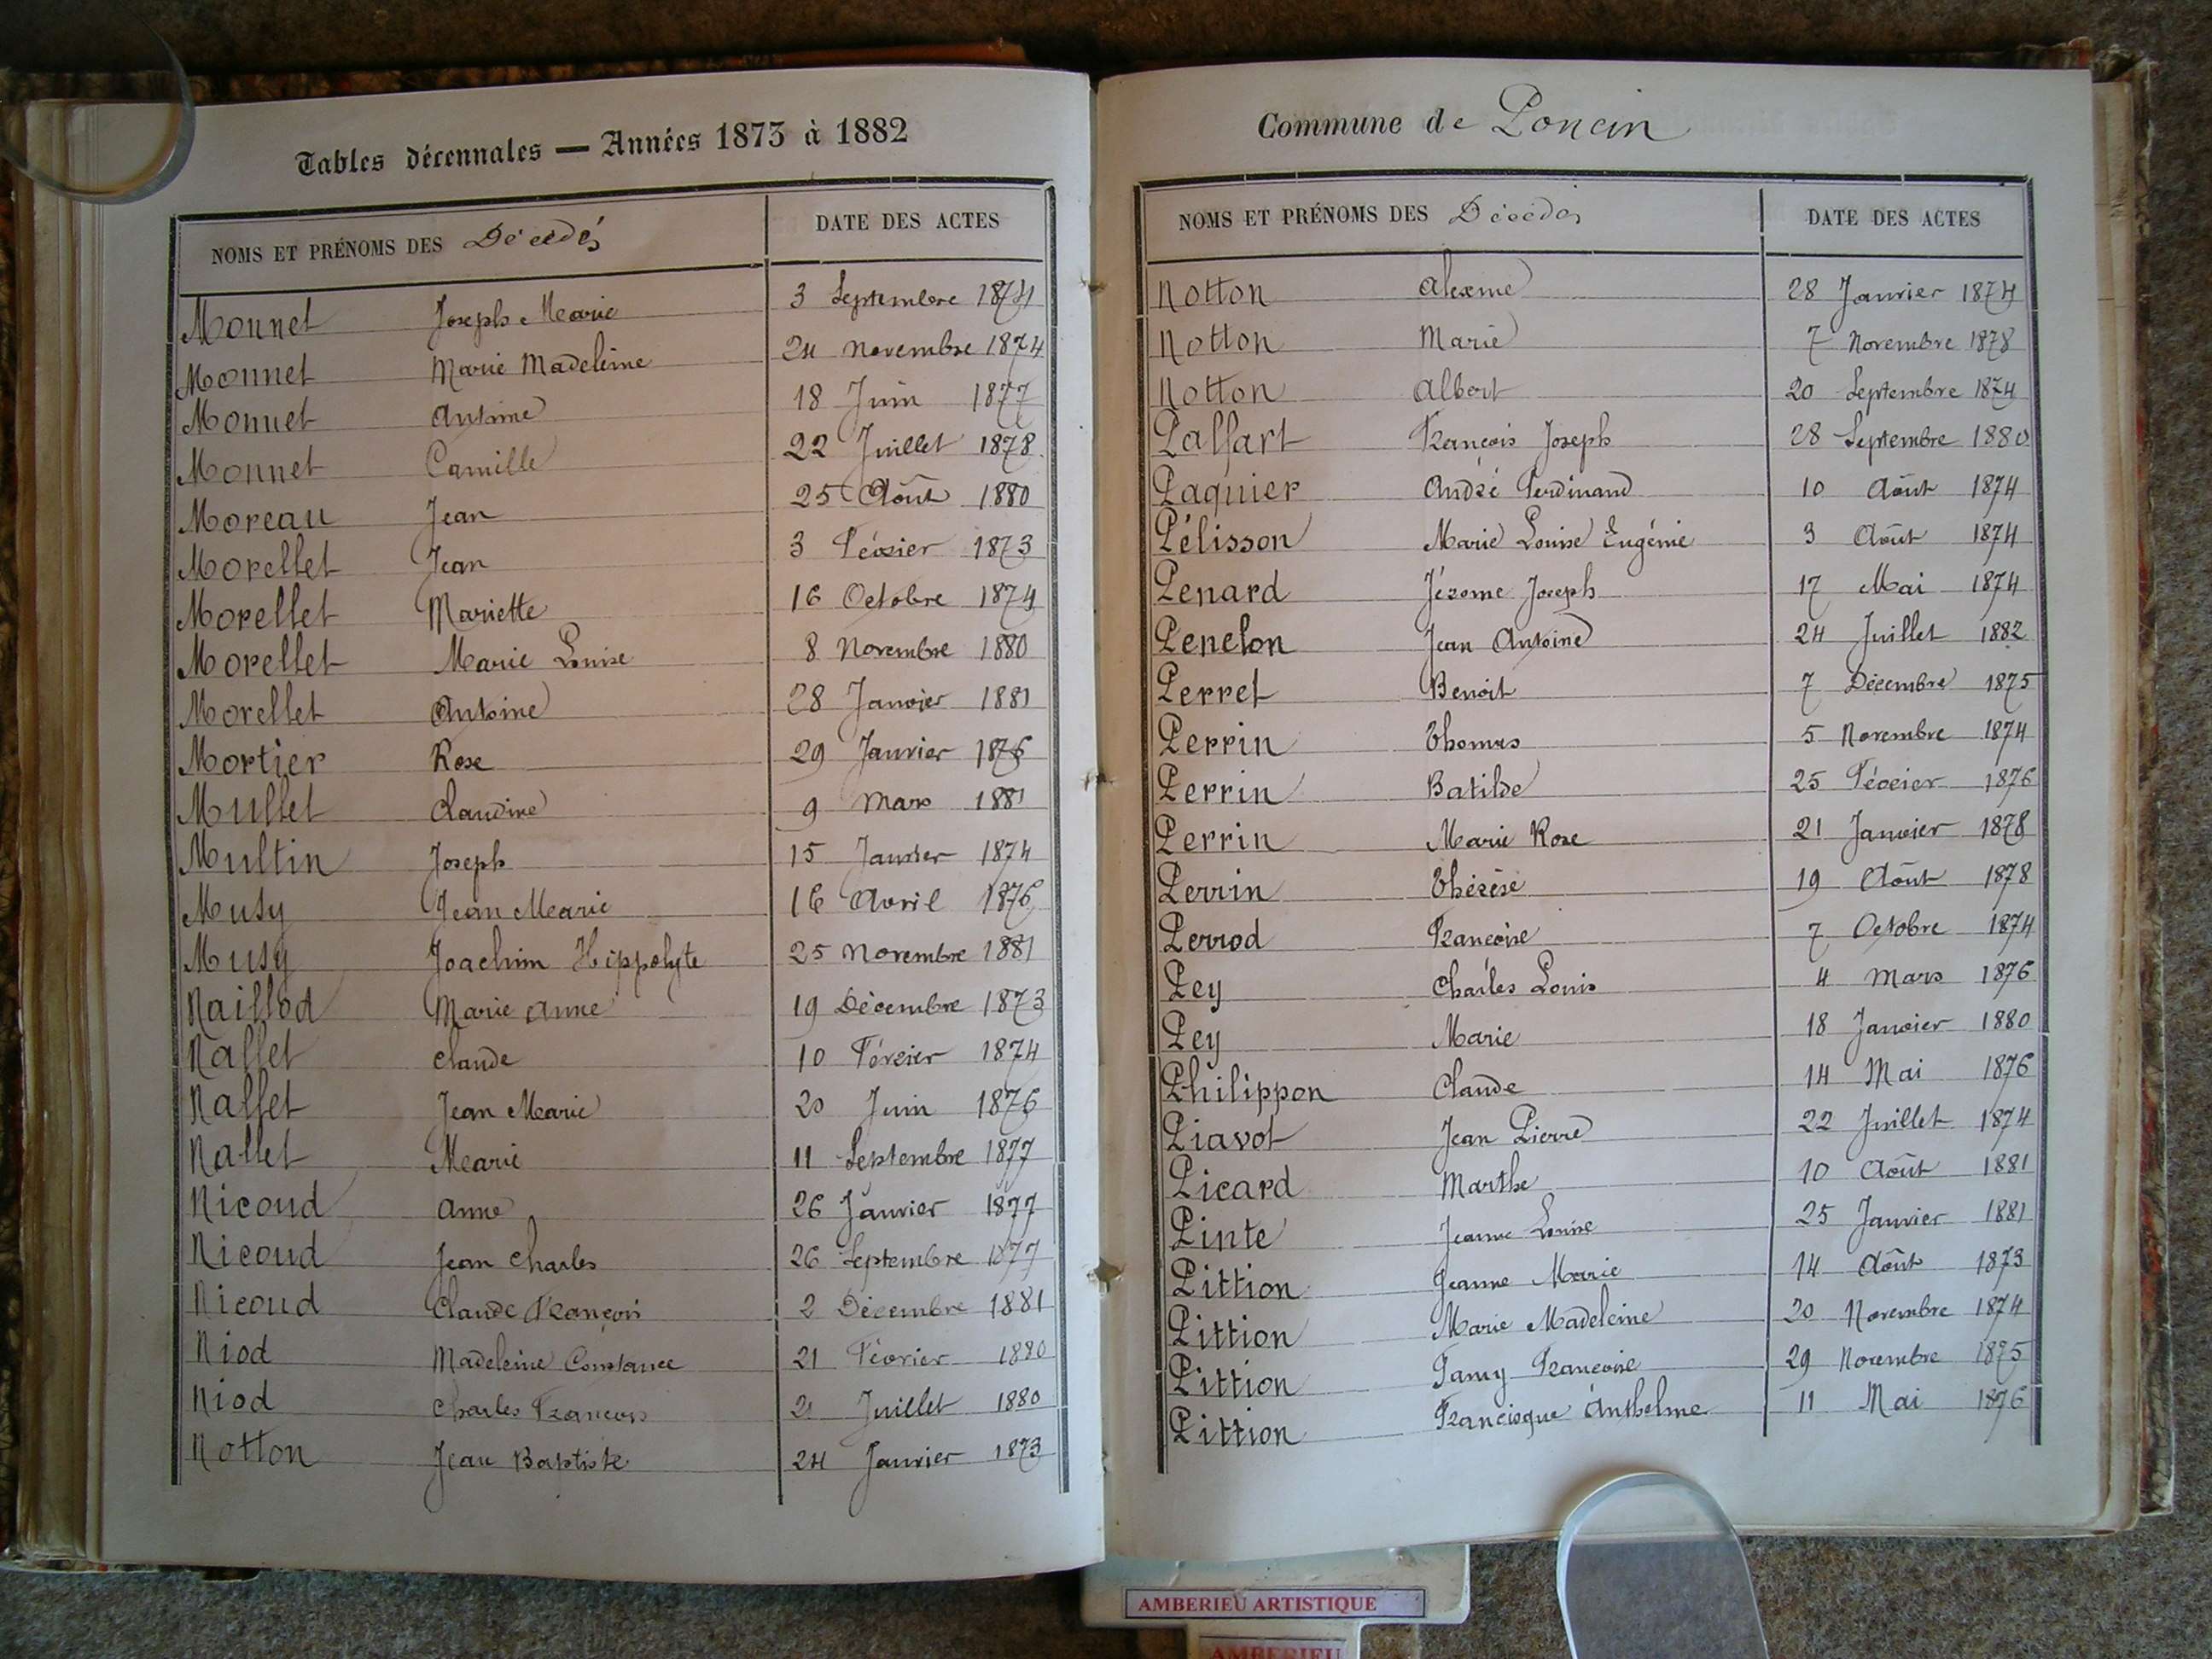 Tables décennales — Années 1873 à 1882
NOMS ET PRÉNOMS DES Décédés DATE DES ACTES
Monnet Joseph Marie 3 Septembre 1874
Monnet Marie Madeleine 24 Novembre 1874
Monnet Antoine 18 Juin 1877
Monnet Camille 22 Juillet 1878
Moreau Jean 25 Août 1880
Morellet Jean 3 Février 1873
Morellet Mariette 16 Octobre 1874
Morellet Marie Louise 8 Novembre 1880
Morellet Antoine 28 Janvier 1881
Mortier Rose 29 Janvier 1876
Mullet Claudine 9 Mars 1881
Multin Joseph 15 Janvier 1874
Musy Jean Marie 16 Avril 1876
Musy Joachim Hippolyte 25 Novembre 1881
Naillod Marie Anne 19 Décembre 1873
Nallet Claude 10 Février 1874
Nallet Jean Marie 20 Juin 1876
Nallet Marie 11 Septembre 1877
Nicoud Anne 26 Janvier 1877
Nicoud Jean Charles 26 Septembre 1877
Nicoud Claude François 2 Décembre 1881
Niod Madeleine Constance 21 Février 1880
Niod Charles François Juillet 1880
Notton Jean Baptiste 24 Janvier 1873
Commune de Poncin
NOMS ET PRÉNOMS DES Décédés DATE DES ACTES
Notton 28 Janvier 1874
Notton Marie 7 Novembre 1878
Notton Albert 20 Septembre 1874
Palfart François Joseph 28 Septembre 1880
Paquier André Ferdinand 10 Août 1874
Pélisson Marie Louise Eugénie 3 Août 1874
Penard Jérome Joseph 17 Mai 1874
Penelon Jean Antoine 24 Juillet 1882
Perret Benoit 7 Décembre 1875
Perrin Thomas 5 Novembre 1874
Perrin Batilde 25 Février 1876
Perrin Marie Rose 21 Janvier 1878
Perrin Thérèse 19 Août 1878
Perrod Françoise 7 Octobre 1874
Pey Charles Louis 4 Mars 1876
Pey Marie 18 Janvier 1880
Philippon Claude 14 Mai 1876
Piavot Jean Pierre 22 Juillet 1874
Picard Marthe 10 Août 1881
Pinte Jeanne Louise 25 Janvier 1881
Pittion Jeanne Marie 14 Août 1873
Pittion Marie Madeleine 20 Novembre 1874
Pittion Fany Françoise 29 Novembre 1875
Pittion Francisque Anthelme 11 Mai 1876
AMBERIEU ARTISTIQUE
AMBERIEU